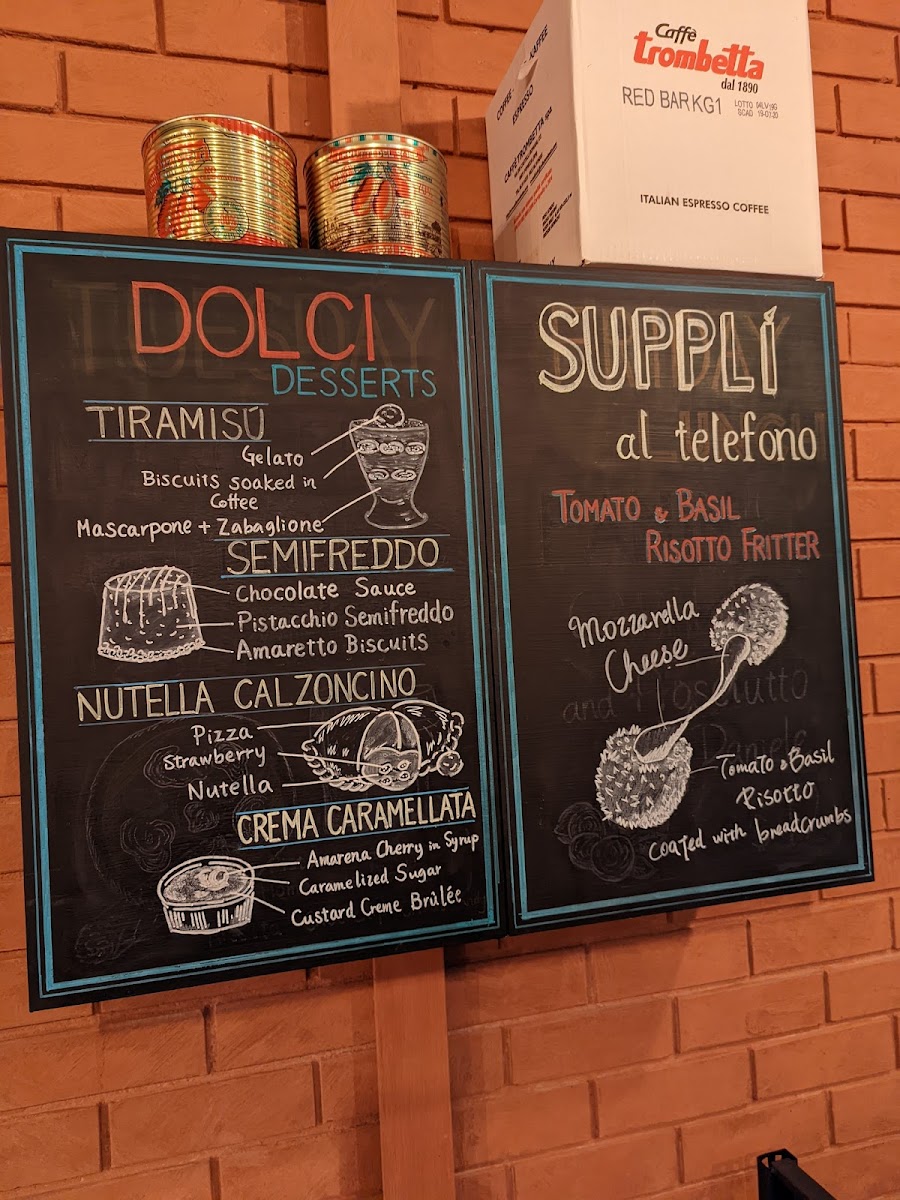 Caffè
trombetta
dal 1890
RED BAR KG1
LOTTO 04LV19G
SCAD 19-07-20
ITALIAN ESPRESSO COFFEE
COFFEE
KAFFEE
ESPRESSO
CAFFÈ TROMBETTA SPA
DOLCI
DESSERTS
TIRAMISÙ
Gelato
Biscuits soaked in
Coffee
Mascarpone + Zabaglione
SEMIFREDDO
Chocolate Sauce
Pistacchio Semifreddo
Amaretto Biscuits
NUTELLA CALZONCINO
Pizza
Strawberry
Nutella
CREMA CARAMELLATA
Amarena Cherry in Syrup
Caramelized Sugar
Custard Creme Brûlée
SUPPLÍ
al telefono
TOMATO & BASIL
RISOTTO FRITTER
Mozzarella
Cheese
Tomato & Basil
Risotto
coated with breadcrumbs